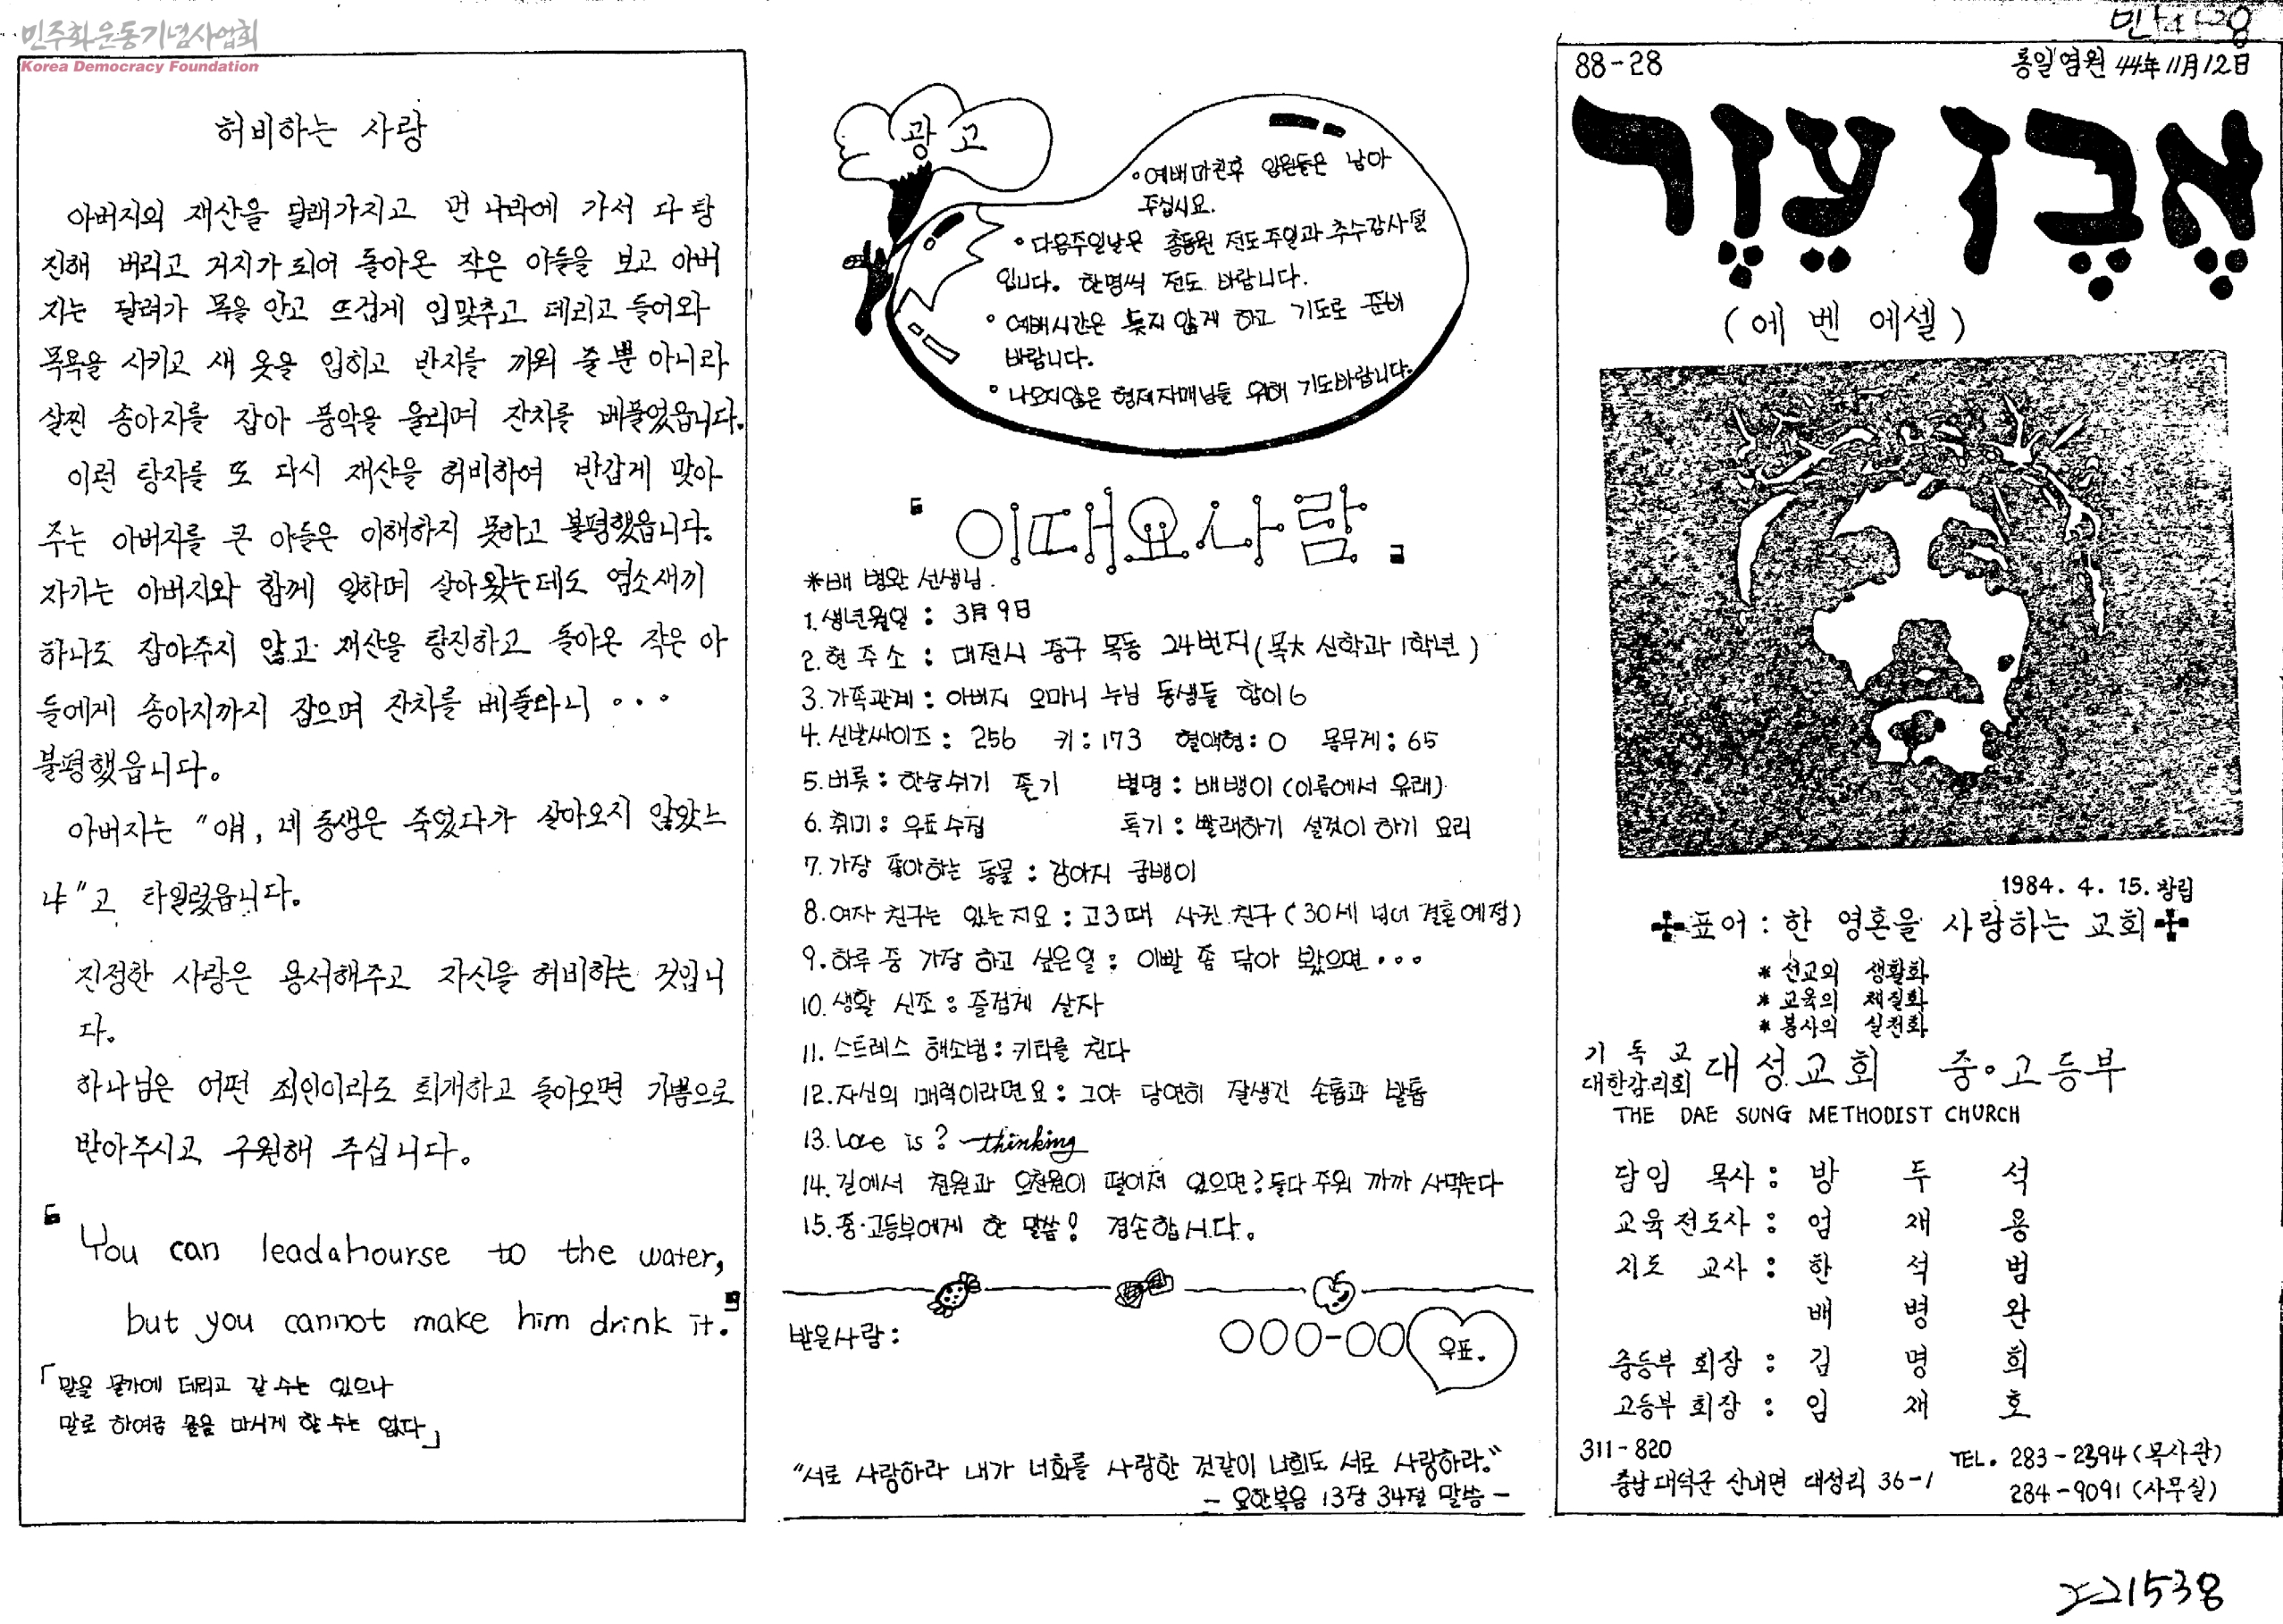 민주화운동기념사업회
Korea Democracy Foundation
허비하는 사랑
아버지의 재산을 달래가지고 먼 나라에 가서 다 탕
진해 버리고 거지가 되어 돌아온 작은 아들을 보고 아버
지는 달려가 목을 안고 뜨겁게 입맞추고 데리고 들어와
목욕을 시키고 새 옷을 입히고 반지를 끼워 줄 뿐 아니라
살찐 송아지를 잡아 풍악을 울리며 잔치를 베풀었읍니다.
이런 탕자를 또 다시 재산을 허비하여 반갑게 맞아
주는 아버지를 큰 아들은 이해하지 못하고 불평했읍니다.
자기는 아버지와 함께 일하며 살아왔는데도 염소새끼
하나도 잡아주지 않고 재산을 탕진하고 돌아온 작은 아
들에게 송아지까지 잡으며 잔치를 베풀다니 ...
불평했읍니다.
아버지는 "얘, 네 동생은 죽었다가 살아오지 않았느
냐"고 타일렀읍니다.
진정한 사랑은 용서해주고 자신을 허비하는 것입니
다.
하나님은 어떤 죄인이라도 회개하고 돌아오면 기쁨으로
받아주시고 구원해 주십니다.
『You can leadahourse to the water,
but you cannot make him drink it.』
「말을 물가에 데리고 갈 수는 있으나
말로 하여금 물을 마시게 할 수는 없다」
광고
• 예배마친후 임원들은 남아
주십시요.
• 다음주일날은 총동원 전도주일과 추수감사절
입니다. 한명씩 전도 바랍니다.
• 예배시간은 늦지 않게 하고 기도로 준비
바랍니다.
• 나오지않은 형제자매님들 위해 기도바랍니다.
『이때요사람』
*배 병완 선생님.
1. 생년월일 : 3月 9日
2. 현 주 소 : 대전시 중구 목동 24번지 (목大 신학과 1학년)
3. 가족관계 : 아버지 오마니 누님 동생들 합이 6
4. 신발싸이즈 : 256 키 : 173 혈액형 : O 몸무게 : 65
5. 버릇 : 한숨쉬기 졸기 별명 : 배뱅이 (이름에서 유래)
6. 취미 : 우표수집 특기 : 빨래하기 설겆이 하기 요리
7. 가장 좋아하는 동물 : 강아지 굼뱅이
8. 여자 친구는 있는지요 : 고3때 사귄 친구 (30세 넘어 결혼예정)
9. 하루 중 가장 하고 싶은일 : 이빨 좀 닦아 봤으면...
10. 생활 신조 : 즐겁게 살자
11. 스트레스 해소법 : 키타를 친다
12. 자신의 매력이라면요 : 그야 당연히 잘생긴 손톱과 발톱
13. Love is? ~thinking
14. 길에서 천원과 오천원이 떨어져 있으면? 둘다 주워 까까 사먹는다
15. 중·고등부에게 한 말씀! 겸손합시다.
받을사람 :
○○○-○○ 우표.
"서로 사랑하라 내가 너희를 사랑한 것같이 너희도 서로 사랑하라."
- 요한복음 13장 34절 말씀 -
88-28
통일염원 44年 11月 12日
אֶבֶן עֵזֶר
(에 벤 에셀)
1984. 4. 15. 창립
표어 : 한 영혼을 사랑하는 교회
* 선교의 생활화
* 교육의 체질화
* 봉사의 실천화
기독교
대한감리회 대성교회 중·고등부
THE DAE SUNG METHODIST CHURCH
담임 목사 : 방 두 석
교육전도사 : 엄 재 용
지도 교사 : 한 석 범
배 병 완
중등부 회장 : 김 명 희
고등부 회장 : 임 재 호
311-820
충남 대덕군 산내면 대성리 36-1
TEL. 283-2394 (목사관)
284-9091 (사무실)
21538